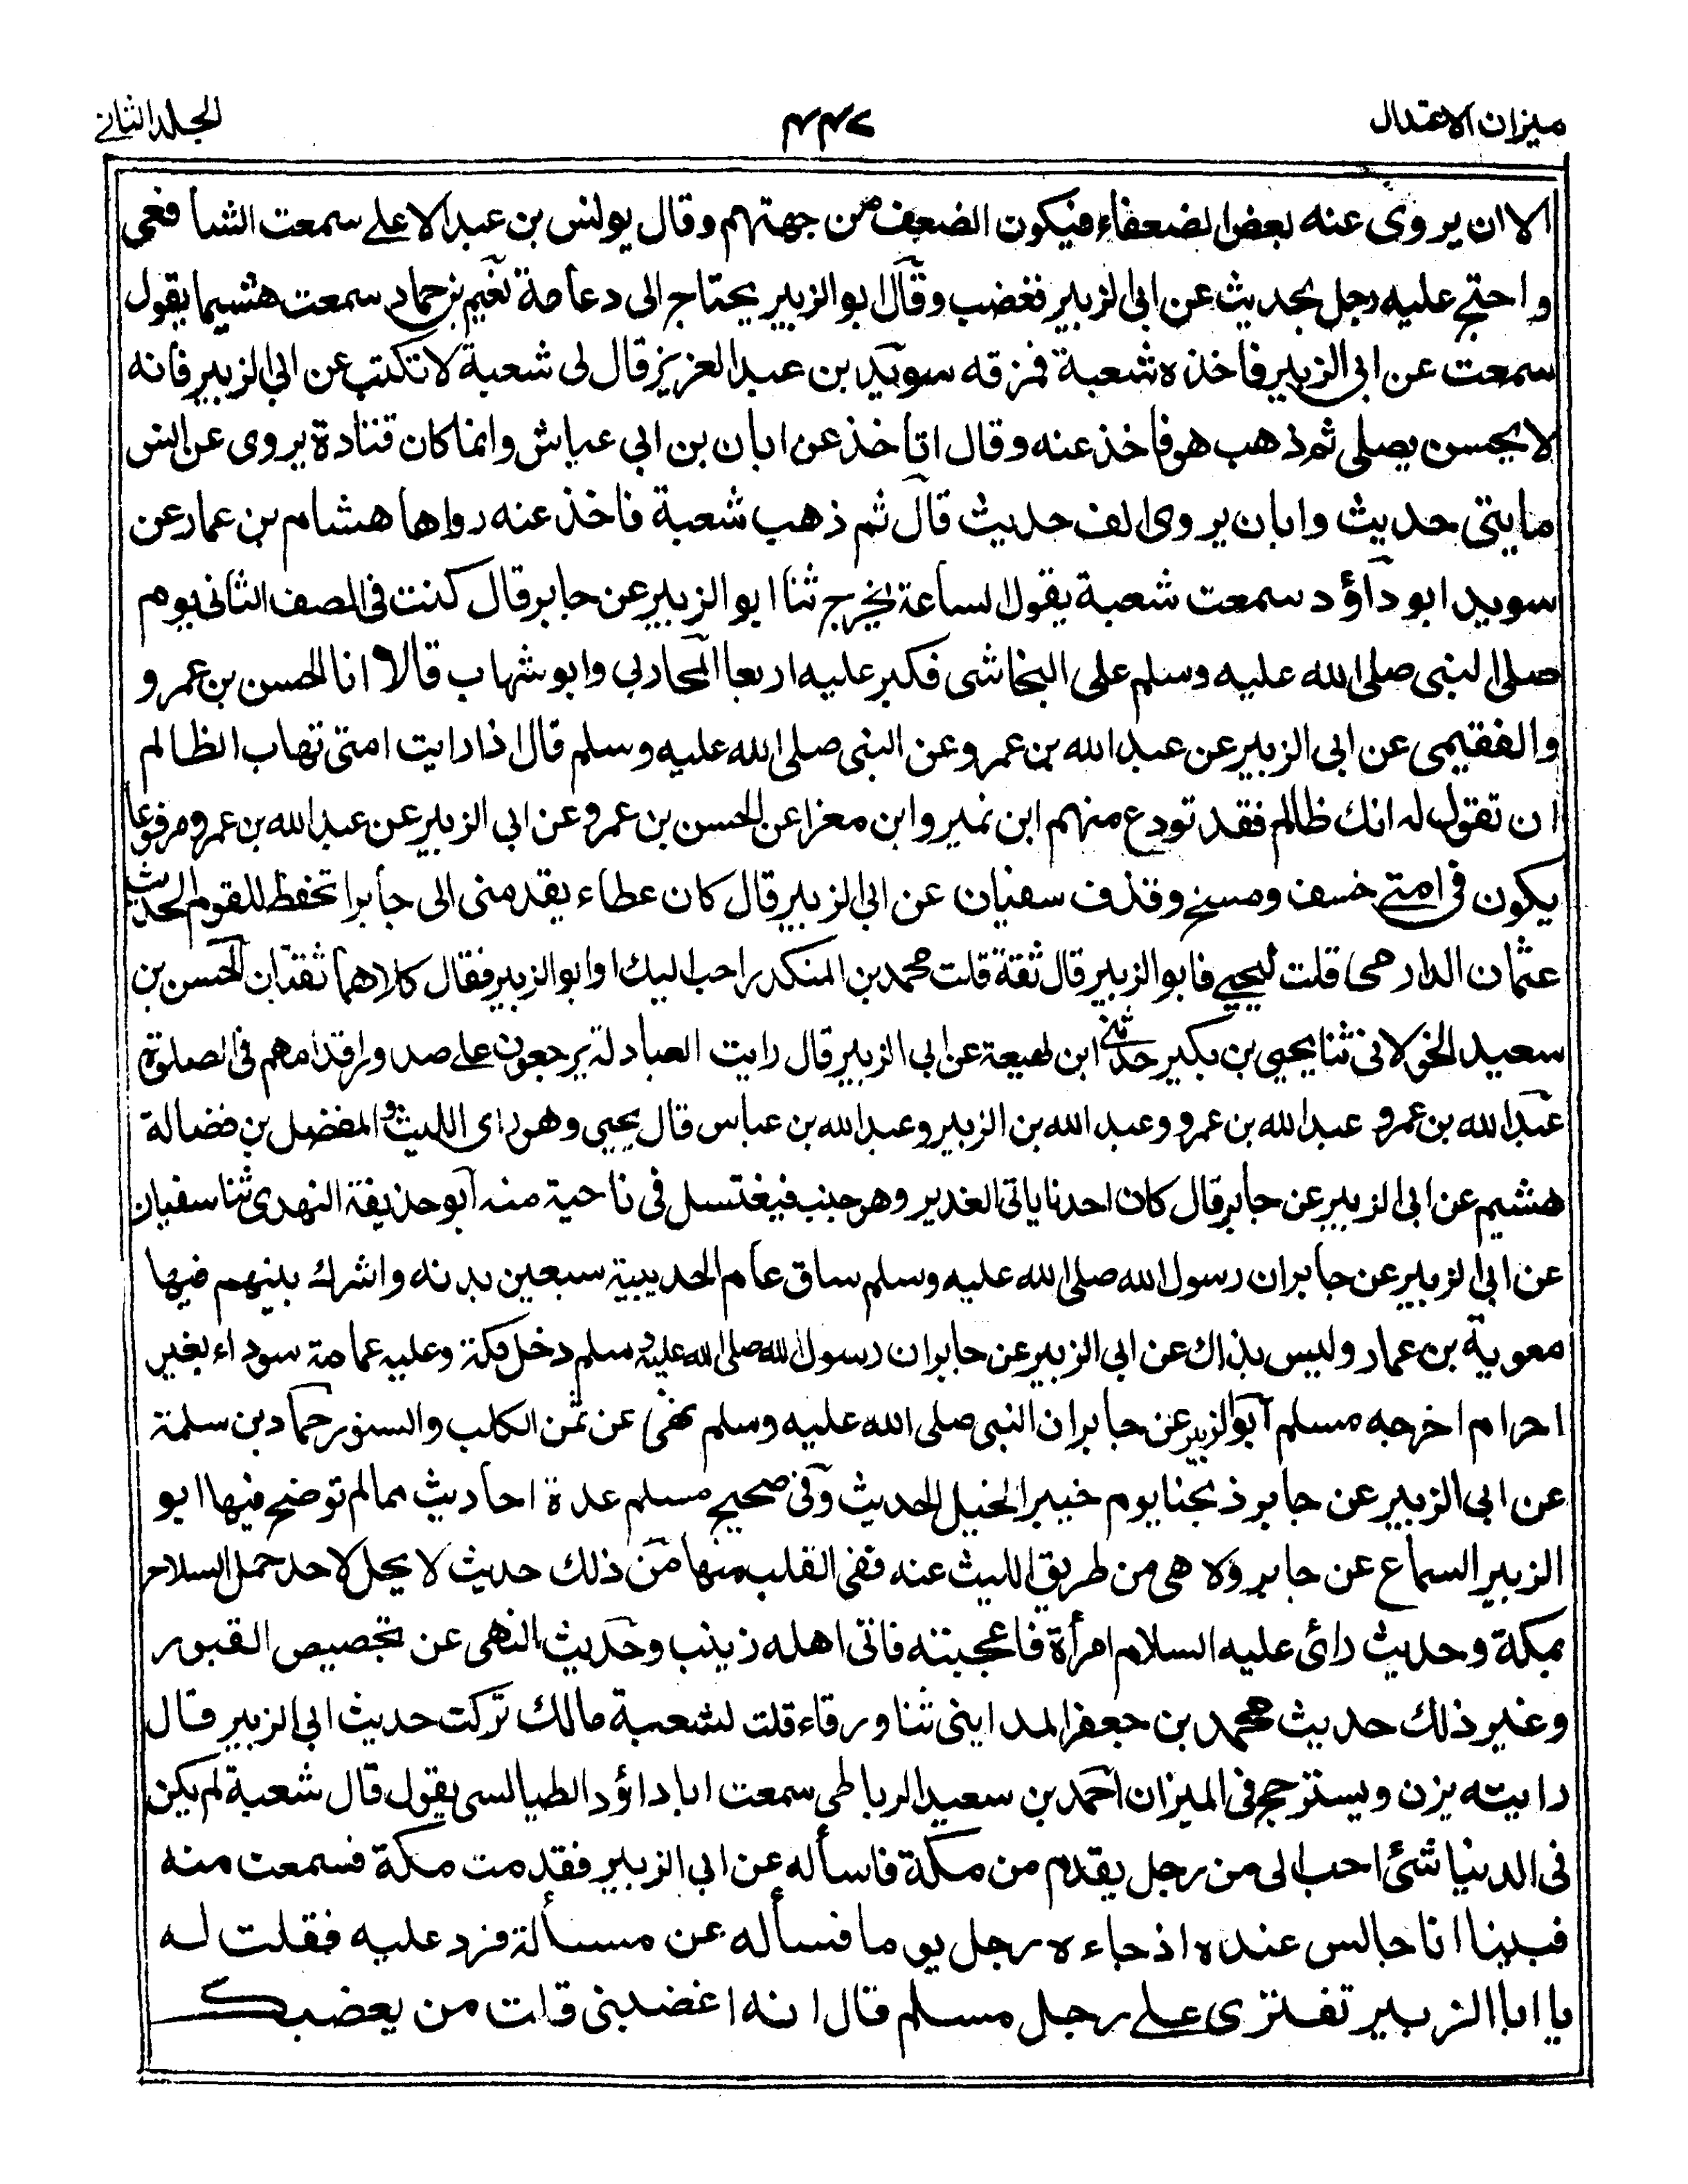 ميزان الاعتدال
الجلد الثاني
الا ان يروى عنه بعض الضعفاء فيكون الضعف من جهتهم وقال يونس بن عبد الاعلى سمعت الشافعي
واحتج عليه رجل بحديث عن ابى الزبير فغضب وقال ابو الزبير يحتاج الى دعامة نعيم بن حماد سمعت هشيما يقول
سمعت عن ابى الزبير فاخذه شعبة فمزقه سويد بن عبد العزيز قال لى شعبة لا تكتب عن ابى الزبير فانه
لا يحسن يصلى ثم ذهب هو فاخذ عنه وقال اتاخذ عن ابان بن ابى عياش وانما كان قتادة يروى عن انس
مايتى حديث وابان يروى الف حديث قال ثم ذهب شعبة فاخذ عنه رواها هشام بن عمار عن
سويد ابو داؤد سمعت شعبة يقول الساعة يخرج ثنا ابو الزبير عن جابر قال كنت فى الصف الثانى يوم
صلى النبى صلى الله عليه وسلم على النجاشى فكبر عليه اربعا المحاربى وابو شهاب قالا انا الحسن بن عمرو
والفقيمى عن ابى الزبير عن عبد الله بن عمرو عن النبى صلى الله عليه وسلم قال اذا رايت امتى تهاب الظالم
ان تقول له انك ظالم فقد تودع منهم ابن نمير وابن مغرا عن الحسن بن عمرو عن ابى الزبير عن عبد الله بن عمرو مرفوعا
يكون فى امتى خسف ومسخ وقذف سفيان عن ابى الزبير قال كان عطاء يقدمنى الى جابر اتحفظ للقوم الحديث
عثمان الدارمى قلت ليحيى فابو الزبير قال ثقة قلت محمد بن المنكدر احب اليك او ابو الزبير فقال كلاهما ثقتان الحسن بن
سعيد الخولانى ثنا يحيى بن بكير حدثنى ابن لهيعة عن ابى الزبير قال رايت العبادلة يرجعون على صدور اقدامهم فى الصلوة
عبد الله بن عمرو عبد الله بن عمرو وعبد الله بن الزبير وعبد الله بن عباس قال يحيى وهو راى الليث والمفضل بن فضالة
هشيم عن ابى الزبير عن جابر قال كان احدنا ياتى الغدير وهو جنب فيغتسل فى ناحية منه ابو حذيفة النهدى ثنا سفيان
عن ابى الزبير عن جابر ان رسول الله صلى الله عليه وسلم ساق عام الحديبية سبعين بدنه واشرك بينهم فيها
معوية بن عمار وليس بذاك عن ابى الزبير عن جابر ان رسول الله صلى الله عليه وسلم دخل مكة وعليه عمامة سوداء بغير
احرام اخرجه مسلم ابو الزبير عن جابر ان النبى صلى الله عليه وسلم نهى عن ثمن الكلب والسنور حماد بن سلمة
عن ابى الزبير عن جابر ذبحنا يوم خيبر الخيل الحديث وفى صحيح مسلم عدة احاديث مما لم توضح فيها ابو
الزبير السماع عن جابر ولا هى من طريق الليث عنه ففى القلب منها من ذلك حديث لا يحل لاحد حمل السلاح
بمكة وحديث رائ عليه السلام امرأة فاعجبته فاتى اهله زينب وحديث النهى عن تجصيص القبور
وغير ذلك حديث محمد بن جعفر المداينى ثنا ورقاء قلت لشعبة مالك تركت حديث ابى الزبير قال
رايته يزن ويسترجح فى الميزان احمد بن سعيد الرباطى سمعت ابا داؤد الطيالسى يقول قال شعبة لم يكن
فى الدنيا شئ احب الى من رجل يقدم من مكة فاسأله عن ابى الزبير فقدمت مكة فسمعت منه
فبينا انا جالس عنده اذ جاءه رجل يوما فسأله عن مسألة فرد عليه فقلت له
يا ابا الزبير تفترى على رجل مسلم قال انه اغضبنى قلت من يغضبك